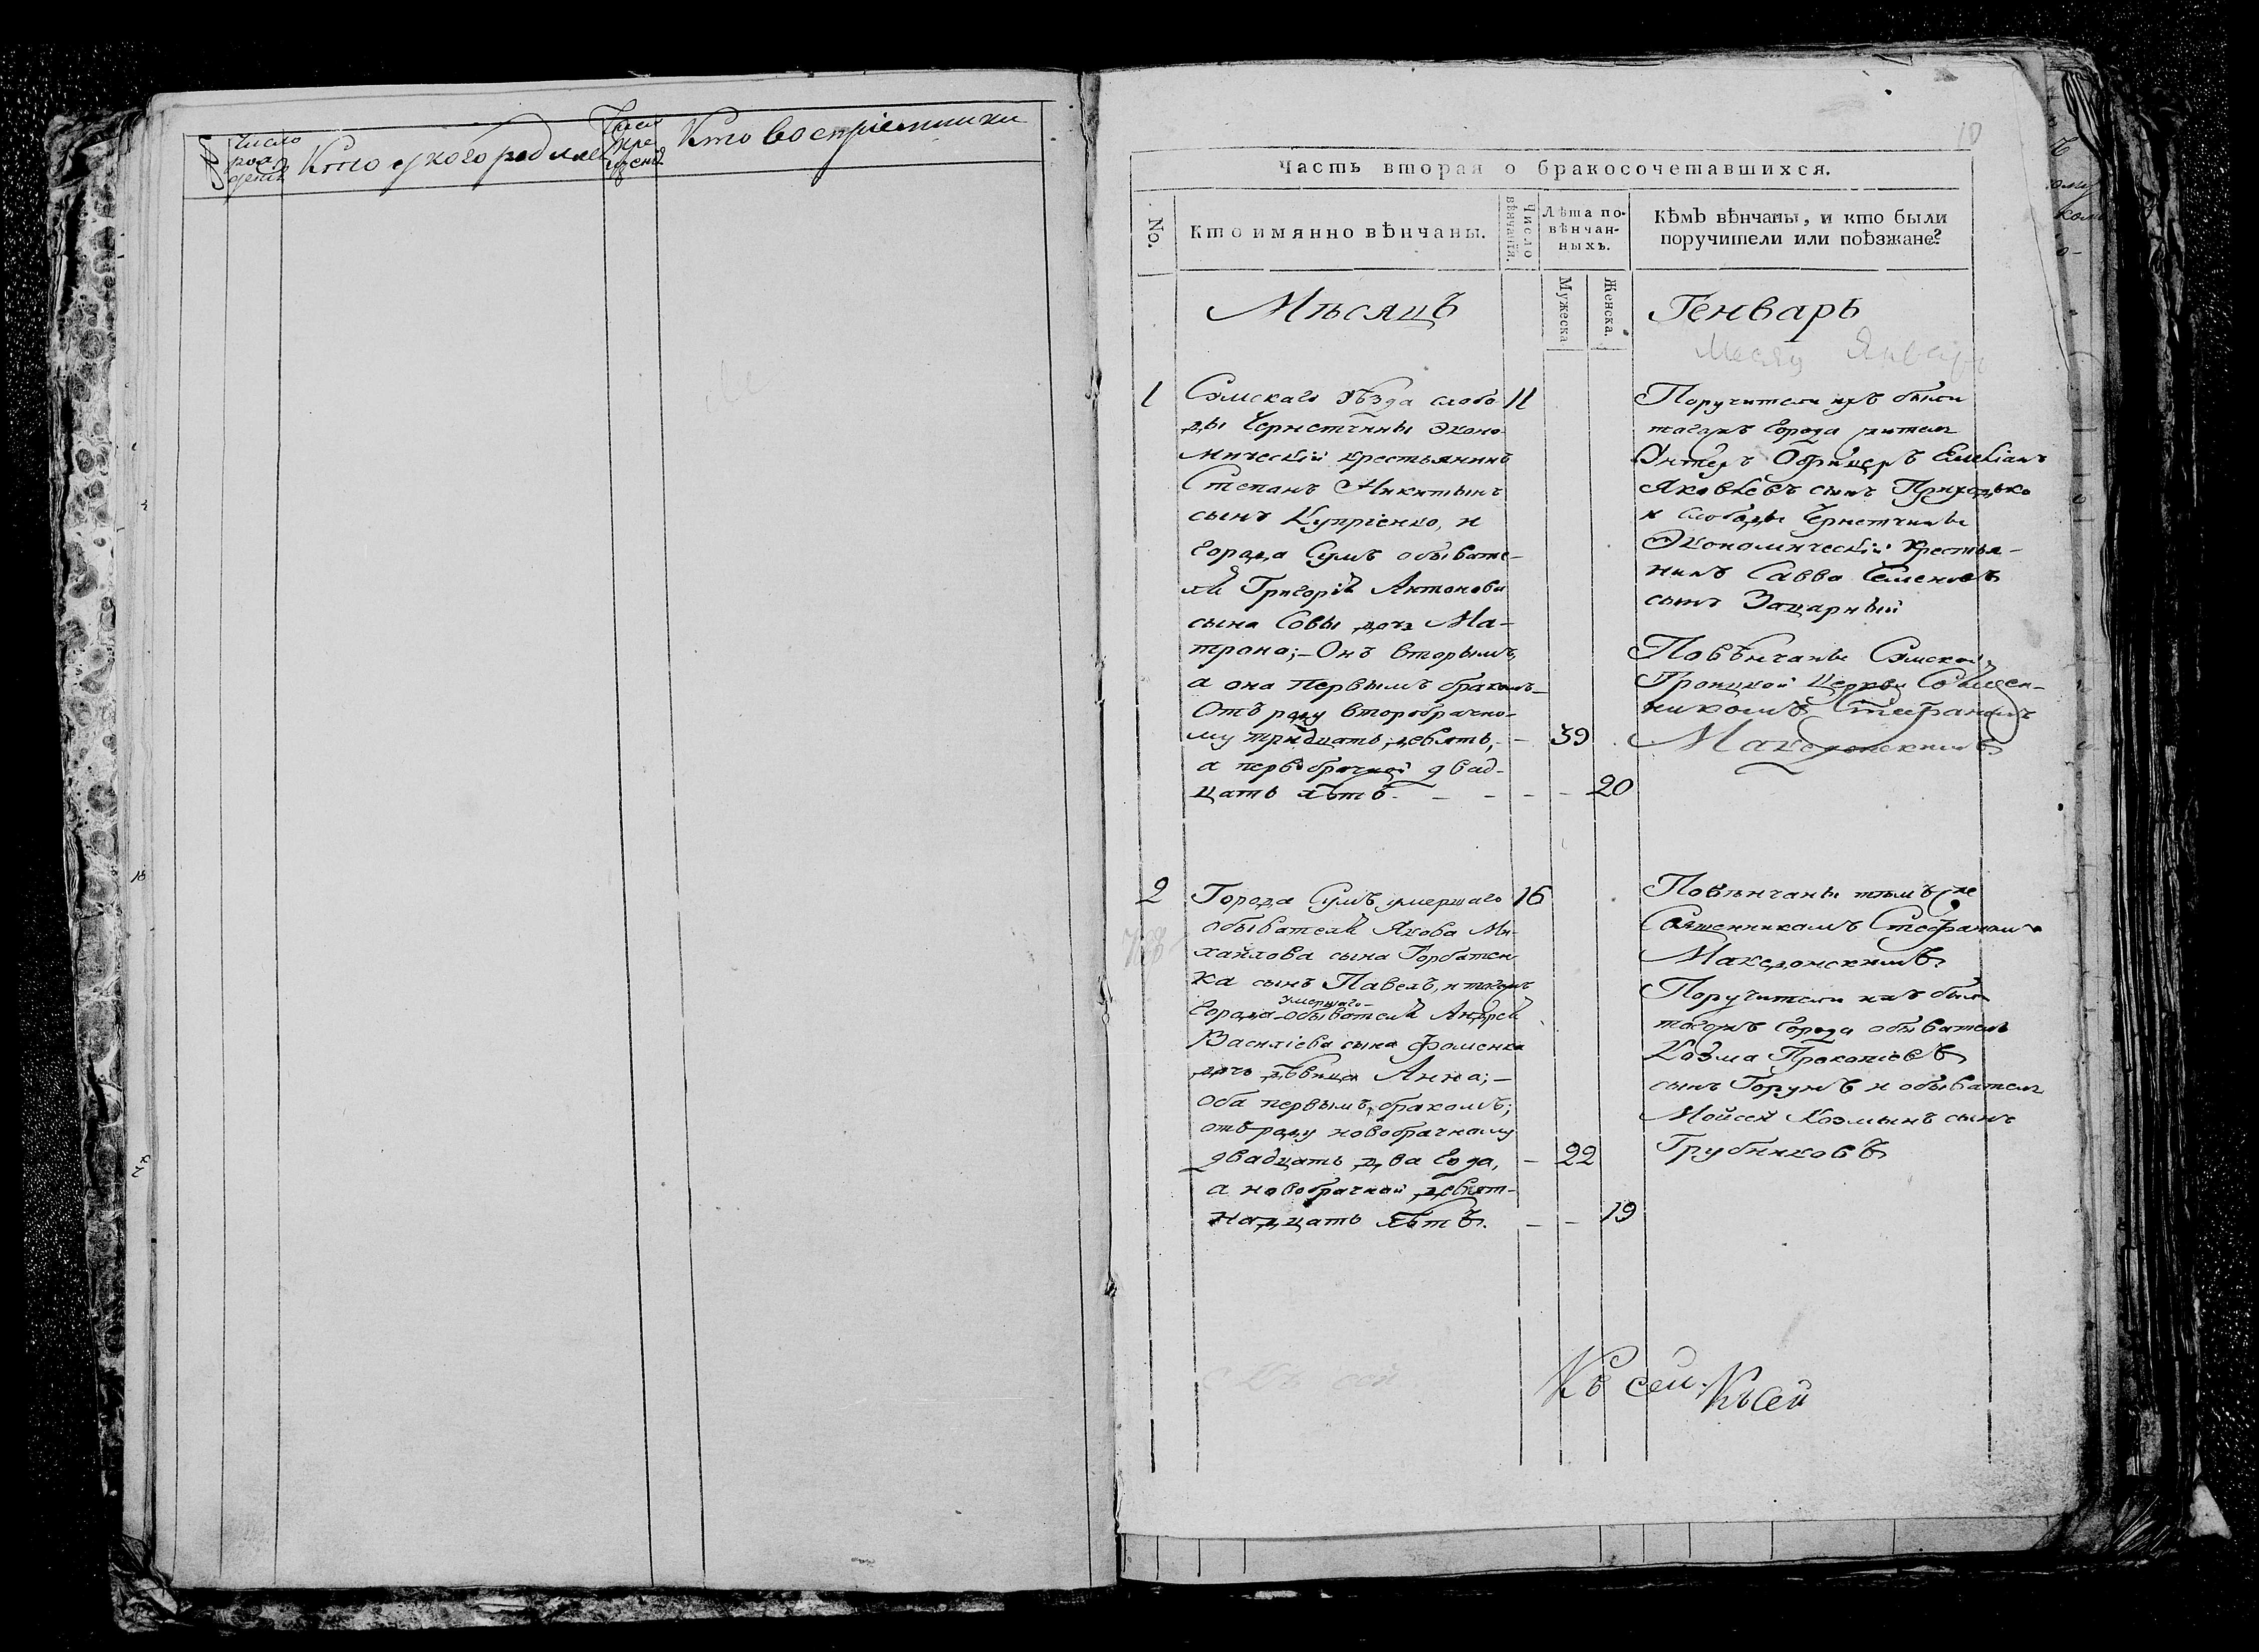 №
Число рождетъ
Кто у кого родился
Число крещенъ
Кто воспріемники
10
Часть вторая о бракосочетавшихся.
No.
Кто имянно вѣнчаны.
Число вѣнчаній.
Лѣта повѣнчанныхъ.
Мужеска
Женска.
Кѣмъ вѣнчаны, и кто были
поручители или поѣзжане?
Мѣсяцъ
Генварь
Январь
1
Сумскаго уѣзда слобо
ды Чернетчины эконо
мическій крестьянинъ
Степанъ Никитинъ
сынъ Купріенко, и
города Сумъ обывате-
ля Григорія Антонова
сына Совы дочь Ма-
трона; – Онъ вторымъ,
а она первымъ бракомъ –
Отъ роду второбрачно-
му тридцать девять, –
а первобрачной двад-
цать лѣтъ. – – – –
11
39
20
Поручители ихъ были
тогожъ города житель
Унтеръ Офицеръ Емеліанъ
Яковлевъ сынъ Приходько
и слободы Чернетчины
Экономическій крестья-
нинъ Савва Семеновъ
сынъ Зацарный
Повѣнчаны Сумской
Троицкой Церкви Священ-
никомъ Стефаномъ
Македонскимъ
2
Города Сумъ умершаго
обывателя Якова Ми-
хайлова сына Горбатен
ка сынъ Павелъ, и тогожъ
умершаго –
города – обывателя Андрея
Василіева сына Фоменка
дочь дѣвица Анна; –
оба первымъ бракомъ;
отъ роду новобрачному
двадцать два года, –
а новобрачной девят-
надцать лѣтъ. – –
16
22
19
Повѣнчаны тѣмъ же
Священникомъ Стефаномъ
Македонскимъ
Поручители ихъ были
тогожъ города обыватель
Козма Прокопіевъ
сынъ Горунъ и обыватель
Мойсей Козминъ сынъ
Трубниковъ
къ сей
Къ сей
Къ сей